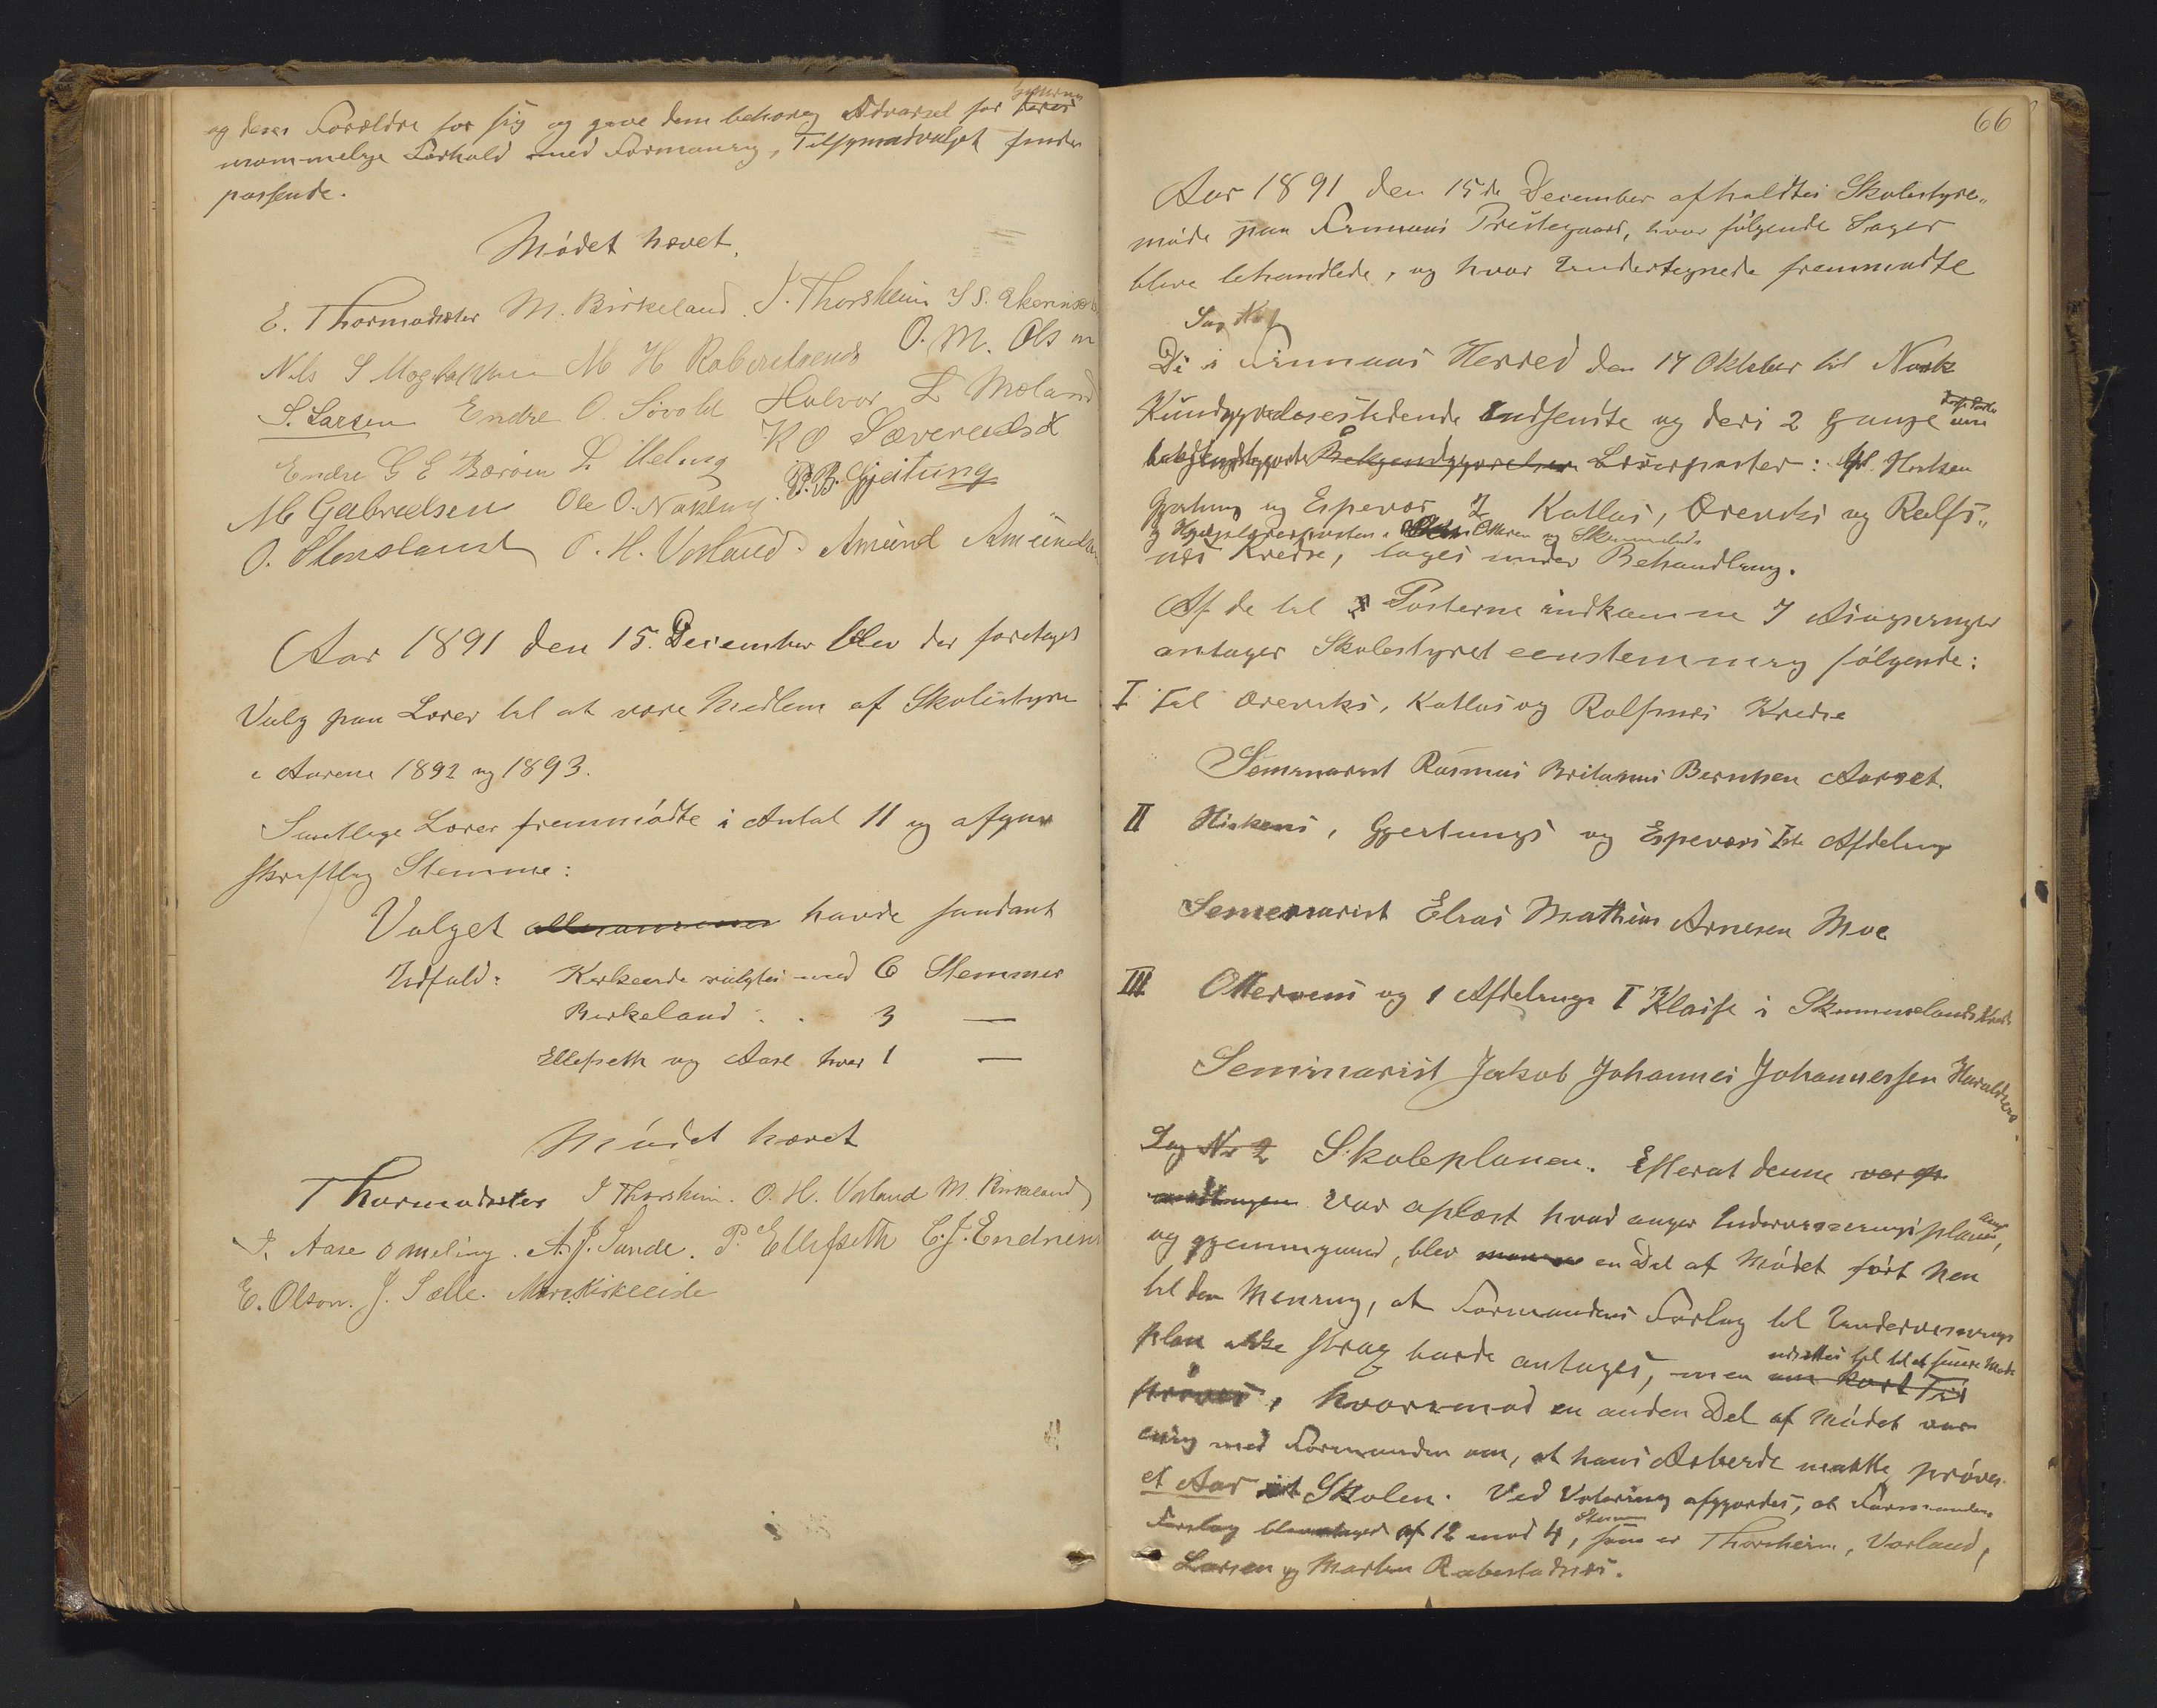 og deres Forældre for sig og gave dem behørig Advarsel for
Forhold med Formaning, Tilsynsudvalget finder
passende.
Mødet hævet.
E. Thormodsæter M. Birkeland. J. Thorsheim
Nils S M H O. M. Olsen
S. Larsen Endre O. Søvold Halvor L Moland
Endre G E Bærøen K O Sæverudsø
M Gabrielsen Ole O. Nonslaug P. B. Gjeitung
O. Stensland O. H. Vorland. Amund Amundsen
Aar 1891 den 15. December blev der foretaget
Valg paa Lærer til at være Medlem af Skolestyre
i Aarene 1892 og 1893.
Samtlige Lærer fremmødte i Antal 11 og afgav
skriftlig Stemme:
Valget havde saadant
Udfald: Kirkeeide valgtes med 6 Stemmer
Birkeland . . 3 —
Ellefseth og Aase hver 1 —
Mødet hævet
Thormodsæter J Thorsheim. O. H. Vorland M. Birkeland
J. Aase O Meling. A. J. Sande. P. Ellefseth C. J. Endresen
E. Olson. J. Sælle. Mons Kirkeeide
66
Aar 1891 den 15de December afholdtes Skolestyre„
møde paa Finnaas Prestegaard, hvor følgende Sager
bleve behandlede, og hvor Undertegnede fremmødte
Sag No 1
De i Finnaas Herred den 14 Oktober til Norsk
Kundgjørelsestidende indsendte og deri 2 Gange
bekjendtgjorte Bekjendtgjørelser Lærerposter: Hisken
Gjeitung og Espevær Katlas, Ørevik og Rolfs„
og Hjælpelærerposten i Otteren og Skimmelands
næs Kredse, tages under Behandling.
Af de til Posterne indkomne 7 Ansøgninger
antager Skolestyret eenstemmig følgende:
I Til Øreviks, Katlas og Rolfsnæs Kredse
Seminarist Rasmus Britanus Berntsen Aarset.
II Hiskens, Gjeitungs og Espeværs 1ste Afdeling
Seminarist Elias Mathias Arnesen Moe
III Otterøens og 1 Afdelings I Klasse i Skimmelands Kreds
Seminarist Jakob Johannes Johannessen Haraldseid.
Sag No 2 Skoleplanen. Efterat denne var
var oplæst hvad angaar Undervisningsplanen,
og gjennemgaaet, blev en Del af Mødet ført hen
til den Mening, at Formandens Forslag til Undervisnings
plan ikke strax burde antages, men om kort Tid
udsættes til et senere Møde
prøves, hvorimod en anden Del af Mødet var
enig med Formanden om, at hans Arbeide maatte prøves
et Aar i Skolen. Ved Votering afgjordes, at Formandens
Forslag blev antaget af 12 mod 4, Stemmer som er Thorsheim, Vorland,
Larsen og Marten Rabestadnæs.